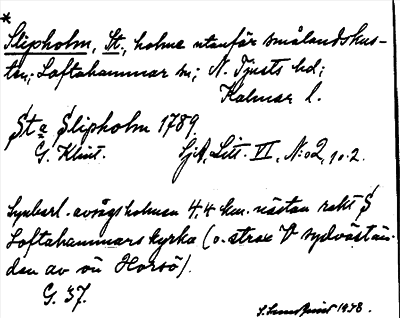 *
Slipholm, St., holme utanför smålandskus-
ten; Loftahammar sn; N. Tjusts hd;
Kalmar l.
Sta Slipholm 1789
G. Klint. SjA, Litt. VI, N:o 2, 10.2.
Synbarl. avsågsholmen 4,4 km. nästan rakt S
Loftahammars kyrka (o. strax V sydvästän-
dan av ön Horsö).
G. 37.
1978.